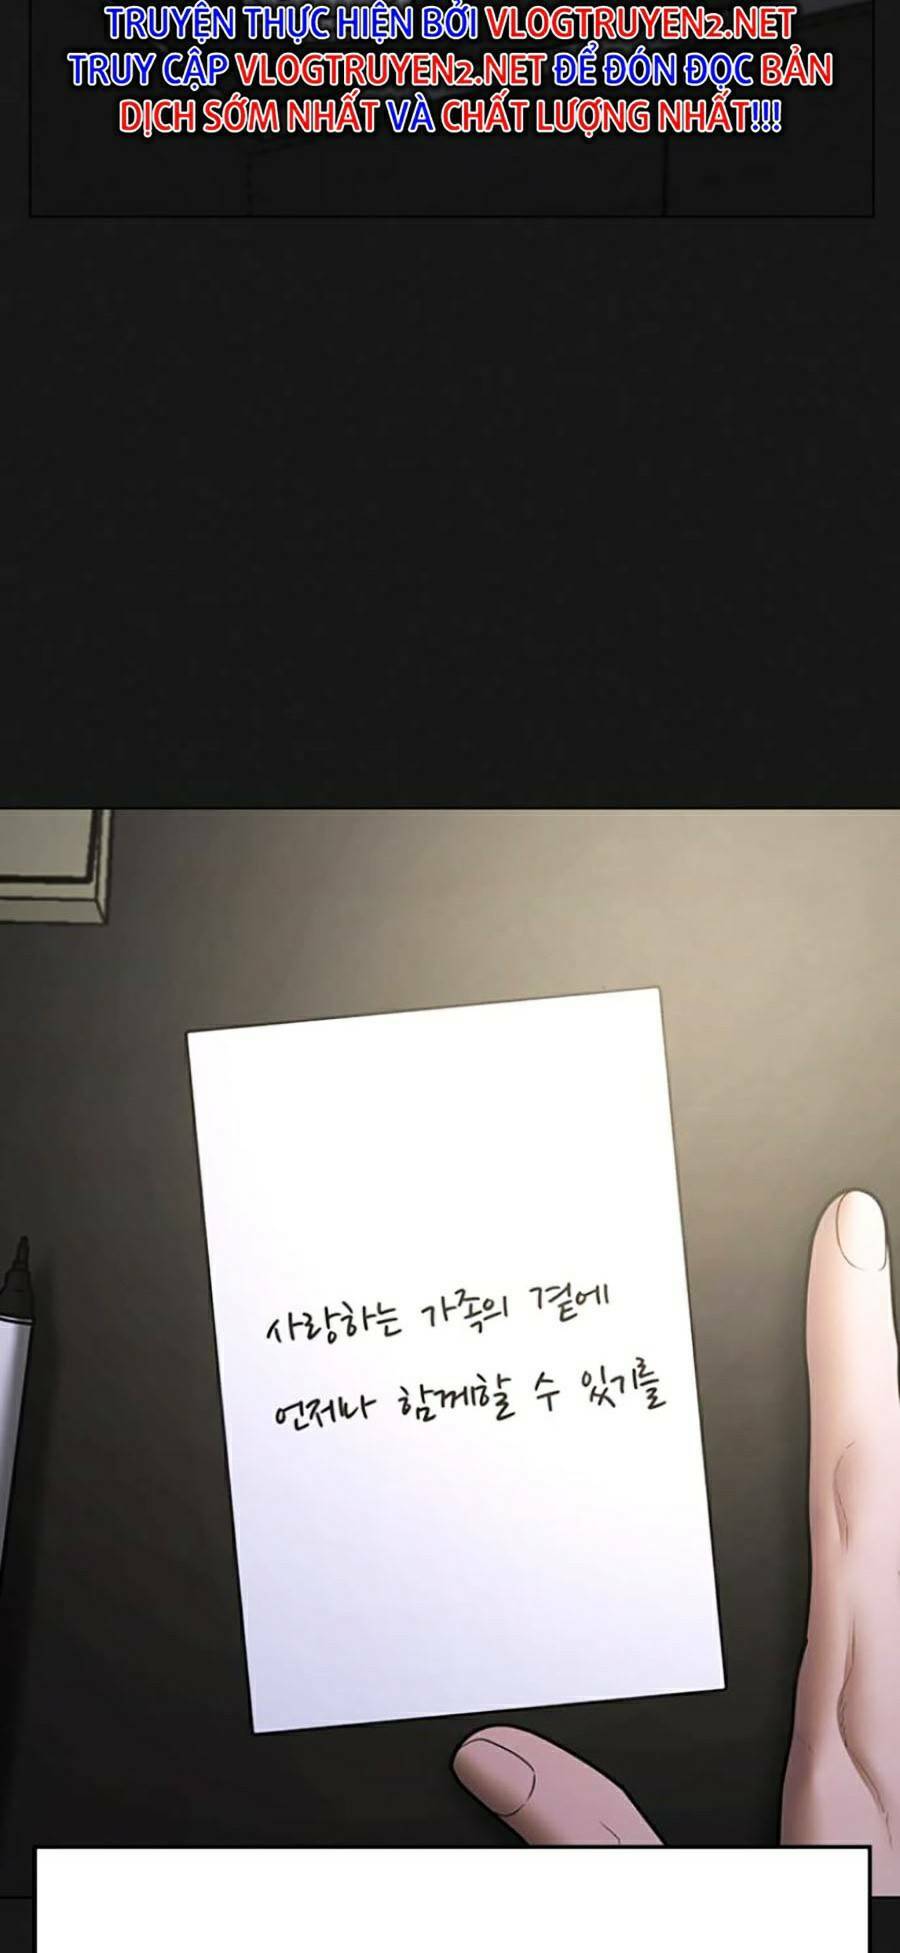 TRUYỆN THỰC HIỆN BỞI VLOGTRUYEN2.NET
TRUY CẬP VLOGTRUYEN2.NET ĐỂ ĐÓN ĐỌC BẢN
DỊCH SỚM NHẤT VÀ CHẤT LƯỢNG NHẤT!!!
사랑하는 가족의 곁에
언제나 함께할 수 있기를